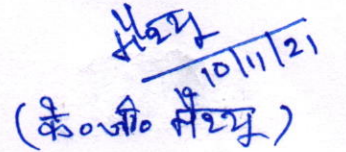 मैथ्यू
10/11/21
(के०जी० मैथ्यू)